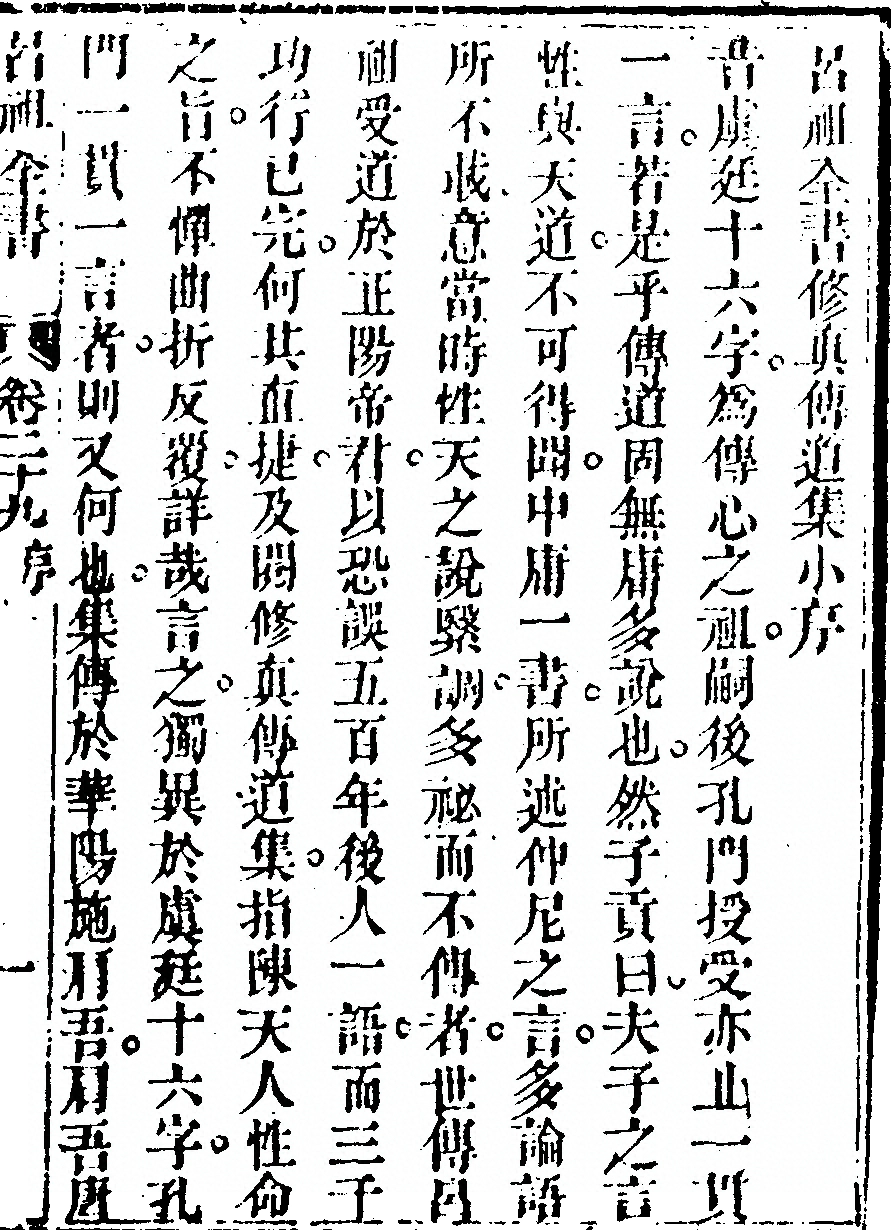 呂祖全書修真傳道集小序
昔虞廷十六字。爲傳心之祖。嗣後孔門授受亦止一貫
一言。若是乎傳道固無庸多說也。然子貢曰。夫子之言
性與天道。不可得聞。中庸一書。所述仲尼之言。多論語
所不載。意當時性天之說。緊謂多祕而不傳者。世傳呂
祖受道於正陽帝君。以恐誤五百年後人一語。而三千
功行已完。何其直捷。及閱修真傳道集。指陳天人性命
之旨。不憚曲折反覆。詳哉言之。獨異於虞廷十六字。孔
門一貫一言者。則又何也。集傳於華陽施肩吾。肩吾唐
呂祖全書 卷三十九 序 一